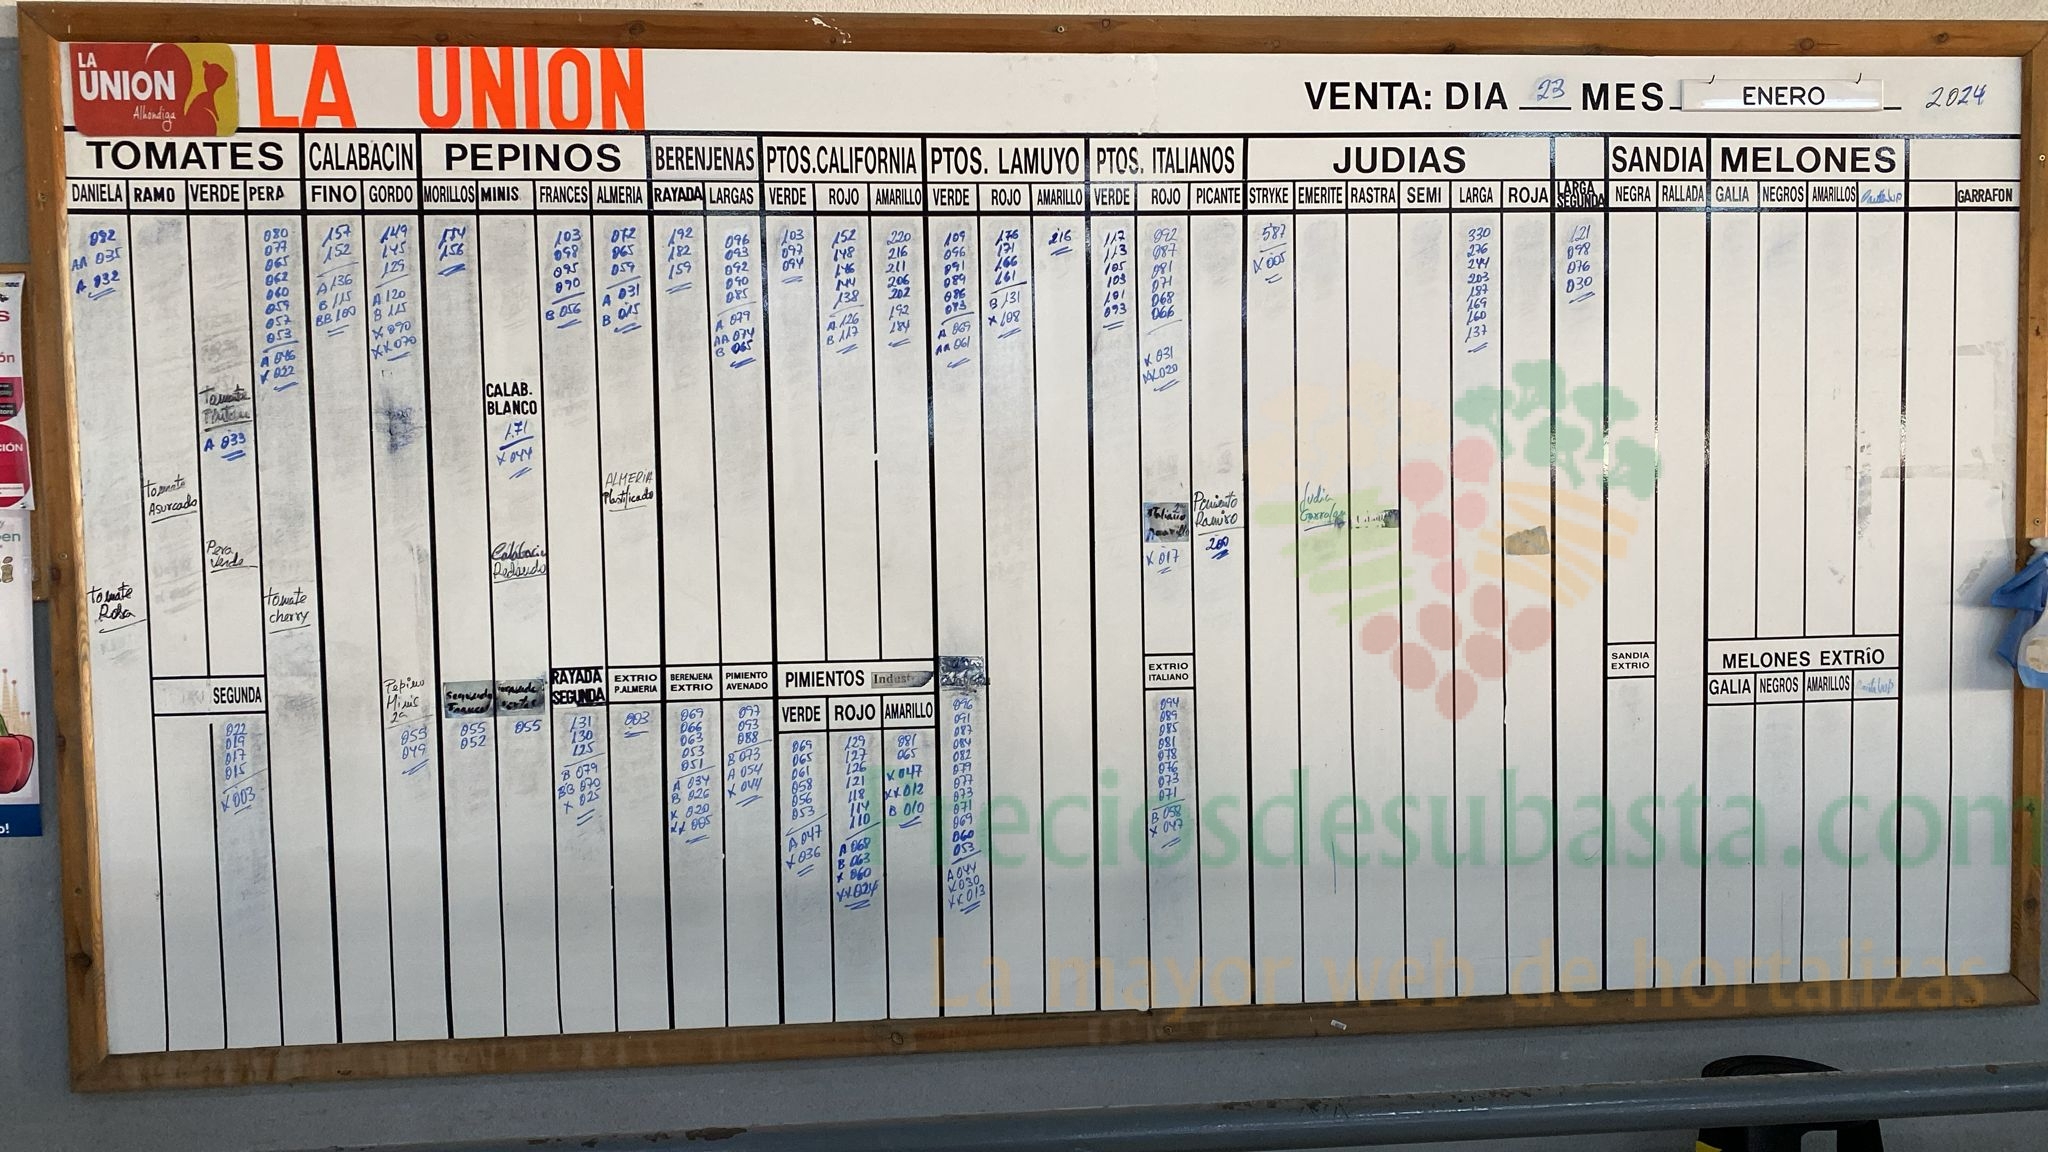 LA UNION Alhondiga
LA UNION
VENTA: DIA 23 MES ENERO 2024
TOMATES CALABACIN PEPINOS BERENJENAS PTOS.CALIFORNIA PTOS. LAMUYO PTOS. ITALIANOS JUDIAS SANDIA MELONES
DANIELA RAMO VERDE PERA FINO GORDO MORILLOS MINIS. FRANCES ALMERIA RAYADA LARGAS VERDE ROJO AMARILLO VERDE ROJO AMARILLO VERDE ROJO PICANTE STRYKE EMERITE RASTRA SEMI LARGA ROJA LARGA SEGUNDA NEGRA RALLADA GALIA NEGROS AMARILLOS GARRAFON
092
AA 035
A 032
080
077
065
062
060
059
057
053
A 046
X 022
157
152
A 136
B 115
BB 100
149
145
129
A 120
B 115
X 090
XX 070
174
156
103
098
095
090
B 056
072
065
059
A 031
B 015
192
182
159
096
093
092
090
085
A 079
AA 074
B 065
103
097
094
152
148
146
144
138
A 126
B 117
220
216
211
206
202
192
184
109
096
091
089
086
083
A 069
AA 061
176
171
166
161
B 131
X 108
216
117
113
105
103
101
093
092
087
081
071
068
066
X 031
020
587
X 005
330
276
244
203
187
169
160
137
121
098
076
030
tomate
A 033
CALAB.
BLANCO
171
X 044
tomate
Asurcado
ALMERIA
Plastificado
Pimiento
Ramiro
200
Judia
X 017
Pera
Verde
Calabacin
Redondo
tomate
Rosa
tomate
cherry
SEGUNDA
022
019
017
015
X 003
Pepino
Minis
2a
055
049
Segunda
Frances
055
052
055
RAYADA
SEGUNDA
131
130
125
B 079
BB 070
X 025
EXTRIO
P.ALMERIA
003
BERENJENA
EXTRIO
069
066
063
053
051
A 034
B 026
X 020
XX 005
PIMIENTO
AVENADO
097
093
088
B 073
A 054
X 044
PIMIENTOS Indust
VERDE ROJO AMARILLO
069
065
061
058
056
053
A 047
X 036
129
127
126
121
118
114
110
A 068
B 063
X 060
XX 024
081
065
X 047
XX 012
B 010
096
091
087
084
082
079
077
073
071
069
060
053
A 044
X 030
XX 013
EXTRIO
ITALIANO
094
089
085
081
078
076
073
071
B 058
X 047
SANDIA
EXTRIO
MELONES EXTRÍO
GALIA NEGROS AMARILLOS
Preciosdesubasta.com
La mayor web de hortalizas